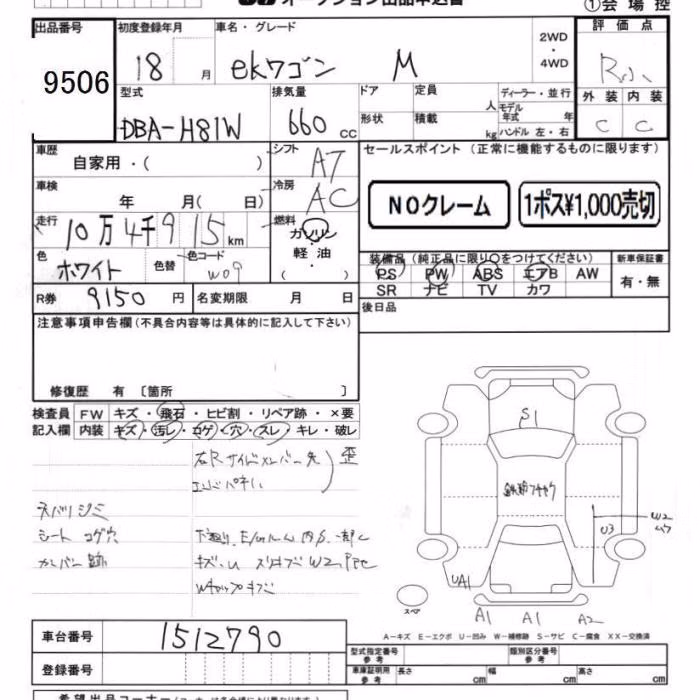 オークション出品申込書
①会場控
出品番号 9506
初度登録年月 18 月
車名・グレード ekワゴン M
2WD ・ 4WD
評価点
外装 内装
C C
型式 DBA-H81W
排気量 660 cc
ドア 定員 人 ディーラー・並行
形状 積載 kg モデル年式 年
ハンドル 左・右
車歴 自家用・( )
シフト AT
セールスポイント（正常に機能するものに限ります）
NOクレーム
1ポス¥1,000売切
車検 年 月( 日)
冷房 AC
走行 10万4千915km
燃料 ガソリン・軽油・( )
色 ホワイト 色替 色コード W09
装備品（純正品に限り○をつけてください）
PS PW ABS エアB AW
SR ナビ TV カワ
新車保証書 有・無
R券 9150 円 名変期限 月 日
後日品
注意事項申告欄（不具合内容等は具体的に記入して下さい）
修復歴 有〔箇所 〕
検査員記入欄
FW キズ・飛石・ヒビ割・リペア跡・×要
内装 キズ・汚レ・コゲ・穴・スレ・キレ・破レ
右Rサイドメンバー先
歪
シート コゲ穴
S1
U3
W2
UA1
スペア
A1 A1 A2
A－キズ E－エクボ U－凹み W－補修跡 S－サビ C－腐食 XX－交換済
車台番号 1512790
登録番号
型式指定番号 参考
類別区分番号 参考
車庫証明用 参考 長さ cm 幅 cm 高さ cm
希望出品コーナー